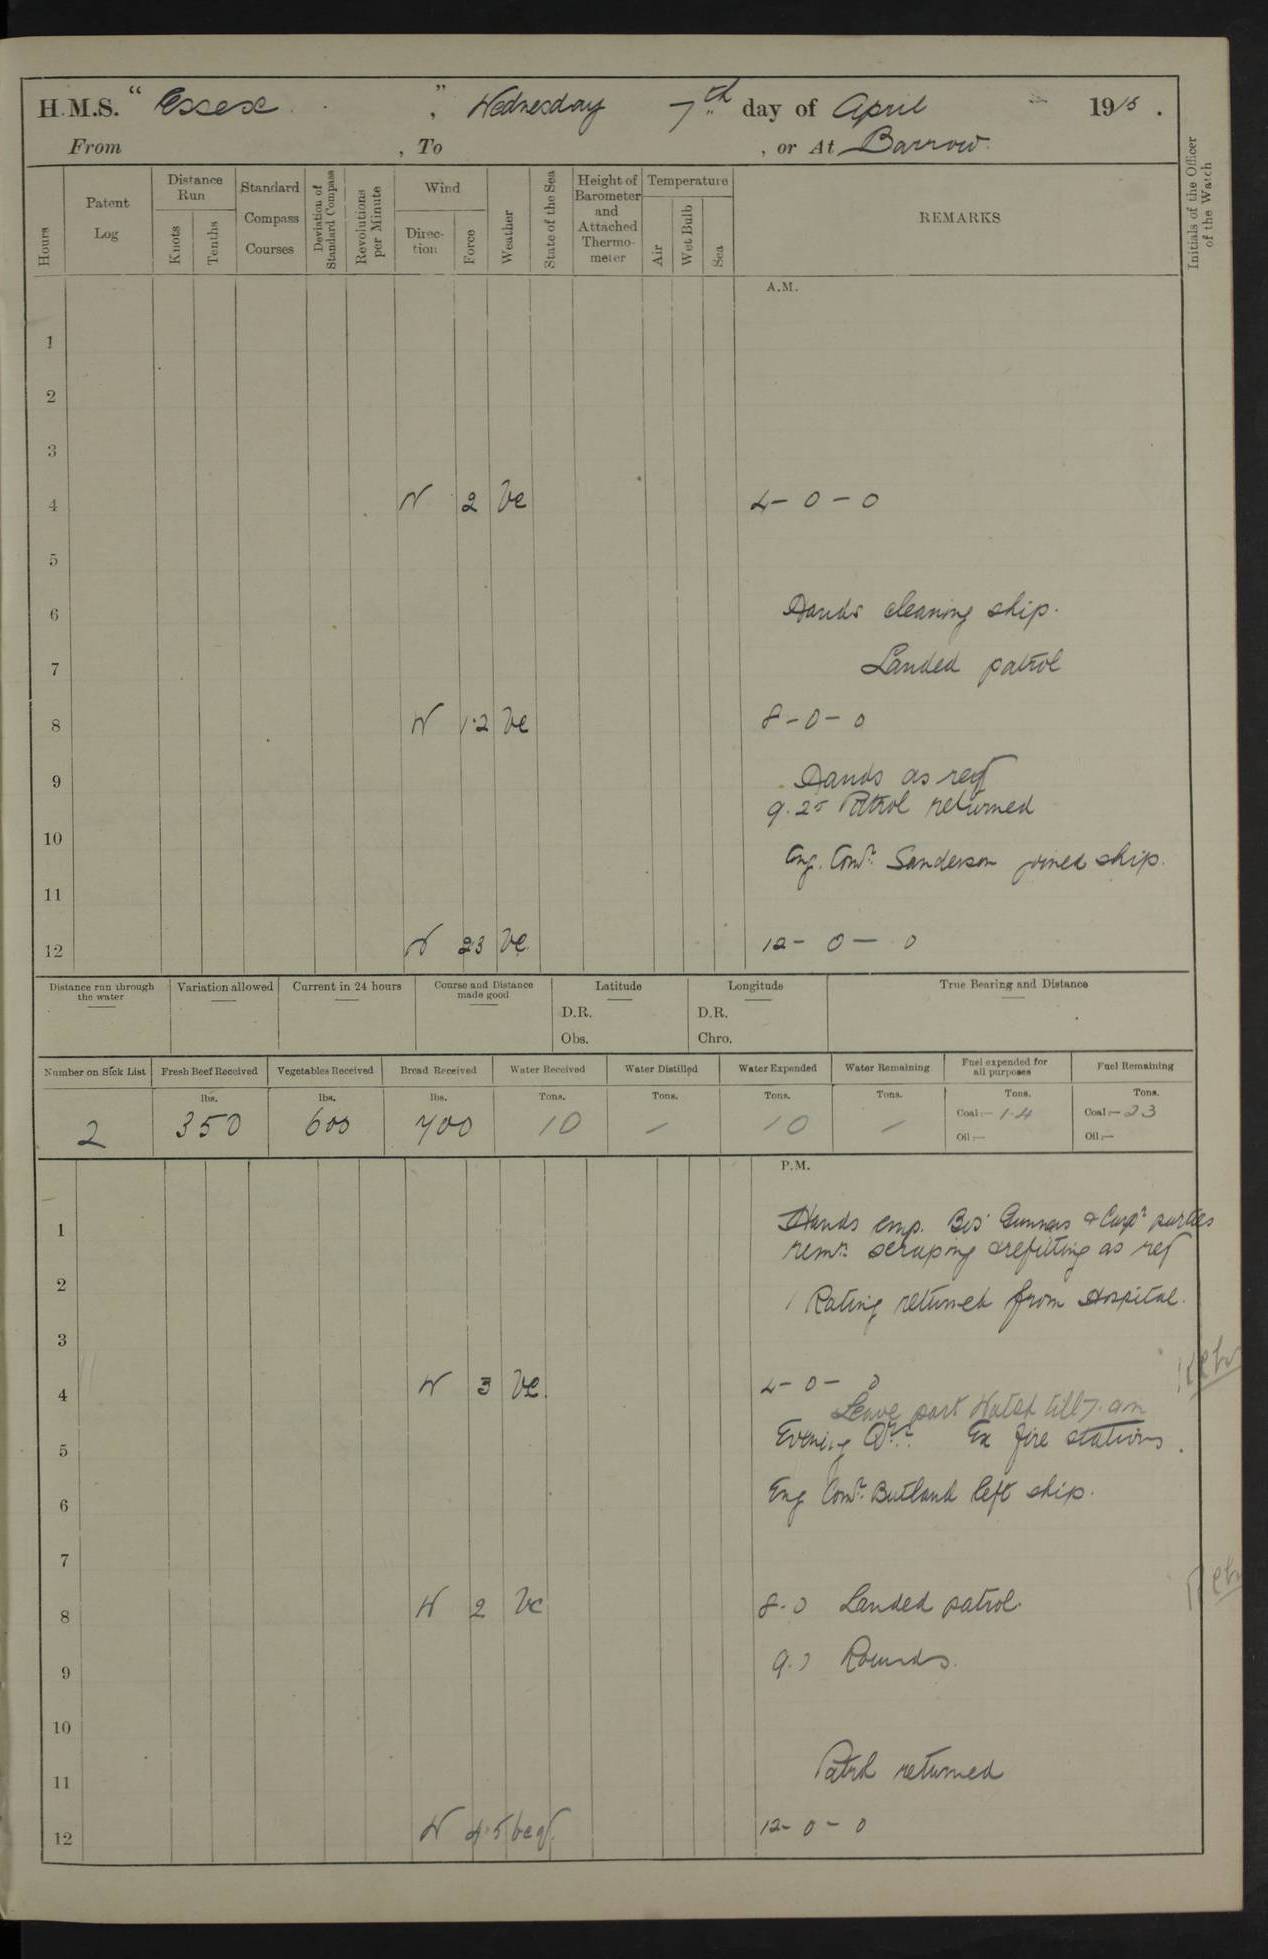 H.M.S. "Essex", Wednesday 7th day of April 1915.
From , To , or At Barrow.
Hours
Patent Log
Distance Run
Knots
Tenths
Standard Compass Courses
Deviation of Standard Compass
Revolutions per Minute
Wind
Direction
Force
Weather
State of the Sea
Height of Barometer and Attached Thermometer
Temperature
Air
Wet Bulb
Sea
REMARKS
Initials of the Officer of the Watch
A.M.
1
2
3
4 W 2 bc 4-0-0
5
6 Hands cleaning ship.
7 Landed patrol
8 W 1.2 bc 8-0-0
9 Hands as req
9.25 Patrol returned
10
Eng. Comr. Sanderson joined ship.
11
12 W 23 bc 12-0-0
Distance run through the water
Variation allowed
Current in 24 hours
Course and Distance made good
Latitude
D.R.
Obs.
Longitude
D.R.
Chro.
True Bearing and Distance
Number on Sick List 2
Fresh Beef Received lbs. 350
Vegetables Received lbs. 600
Bread Received lbs. 700
Water Received Tons. 10
Water Distilled Tons. —
Water Expended Tons. 10
Water Remaining Tons. —
Fuel expended for all purposes Tons.
Coal:— 14
Oil:—
Fuel Remaining Tons.
Coal:— 23
Oil:—
P.M.
1 Hands emp. Bos' Gunners & Carpr parties
remr. scraping & refitting as req
2 1 Rating returned from Hospital.
3
4 W 3 bc. 4-0-0
Leave part Watch till 7. am
5 Evening Qrs. Ex fire stations.
6 Eng Comr. Butland left ship.
7
8 W 2 bc 8.0 Landed patrol.
9 9.0 Rounds.
10
11 Patrol returned
12 W 4.5 bcq. 12-0-0